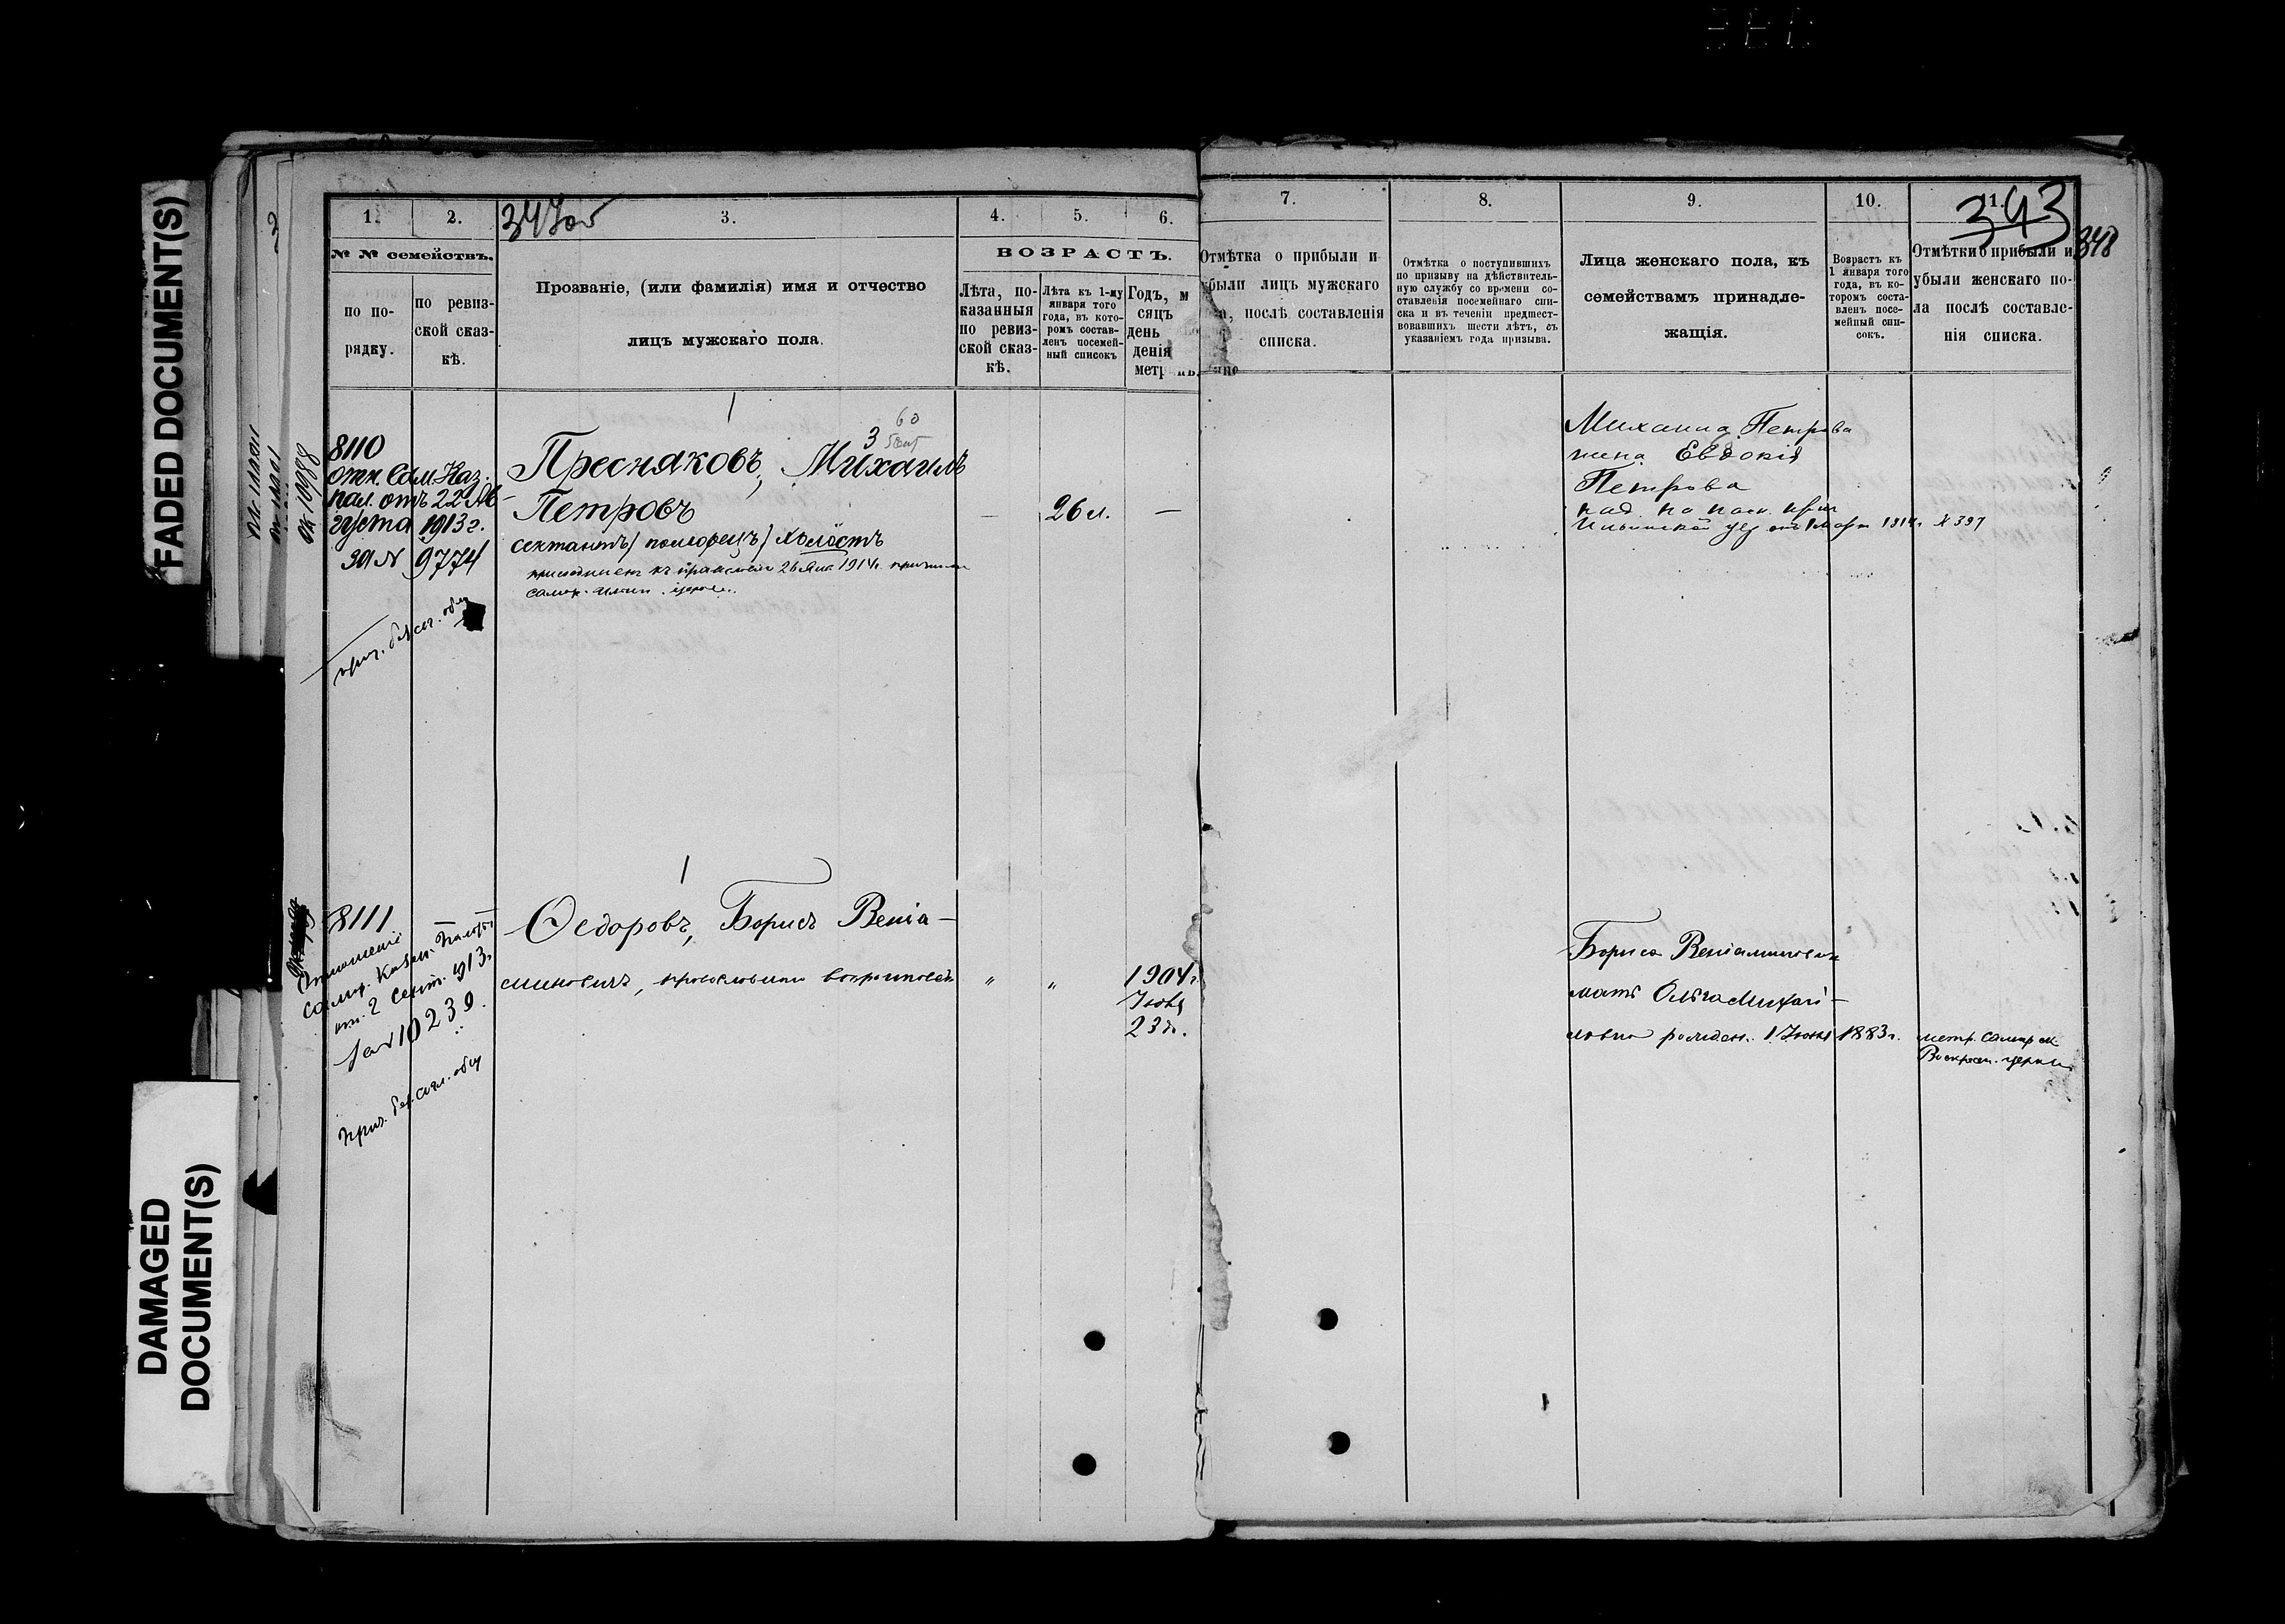 FADED DOCUMENT(S)
DAMAGED
DOCUMENT(S)
1.
2.
347об
3.
4.
5.
6.
№ № семействъ.
ВОЗРАСТЪ.
по по-
рядку.
по ревиз-
ской сказ-
кѣ.
Прозваніе, (или фамилія) имя и отчество
лицъ мужскаго пола.
Лѣта, по-
казанныя
по ревиз-
ской сказ-
кѣ.
Лѣта къ 1-му
января того
года, въ кото-
ромъ состав-
ленъ посемей-
ный список
Годъ, м
сяцъ
день
денія
метр
7.
8.
9.
10.
11.
343
348
Отмѣтка о прибыли и
убыли лицъ мужскаго
, послѣ составленія
списка.
Отмѣтка о поступившихъ
по призыву на дѣйствитель-
ную службу со времени со-
ставленія посемейнаго спи-
ска и въ теченіи предшест-
вовавшихъ шести лѣтъ, съ
указаніемъ года призыва.
Лица женскаго пола, къ
семействамъ принадле-
жащія.
Возрастъ къ
1 января того
года, въ ко-
торомъ соста-
вленъ посе-
мейный спи-
сокъ.
Отмѣтки о прибыли и
убыли женскаго по-
ла послѣ составле-
нія списка.
1
60
3
Ок 10988
8110
отн. Сам. Каз.
пал. отъ 22 Ав-
густа 1913 г.
за N 9774
Пресняковъ, Михаилъ
Петровъ
—
26 л.
—
сектантъ/поморецъ/холостъ
присоединенъ къ 26 Янв 1914г.
Михаила Петрова
жена Евдокія
Петрова
1914г. N 397
1
8111
Отношеніе
Самар. Казен. Палаты
от. 2 Сент. 1913г
за N 10239.
Ѳедоровъ, Борисъ Веніа-
миновичъ, православнаго
"
"
1904г.
Іюля
23 д.
Бориса Веніаминовича
мать Ольга Михай-
ловна рожден. 1 Іюня 1883г.
метр. Самарск
Воскресен. церкви